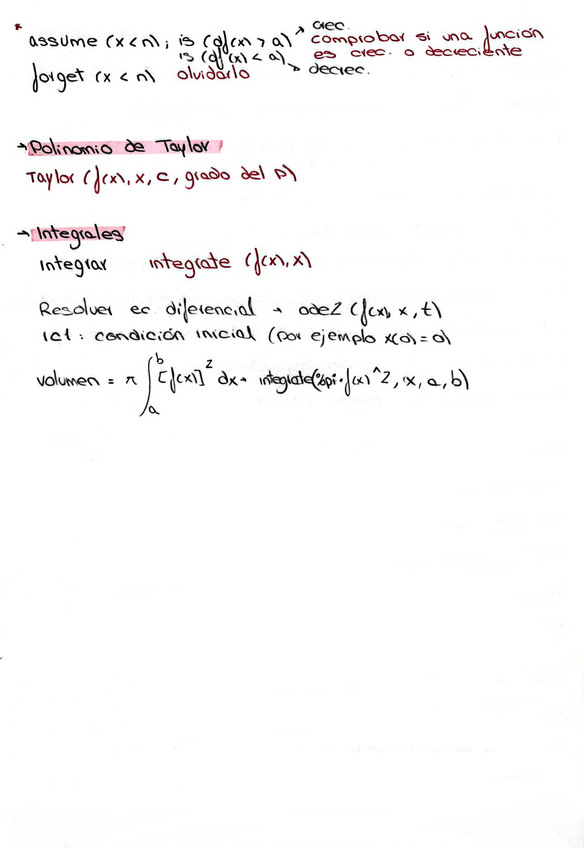 *
assume (x<n); is (df(x) > a) → crec. comprobar si una función
is (df(x) < a) → decrec. es crec. o decreciente
forget (x<n) olvidarlo
→ Polinomio de Taylor
Taylor (f(x), x, c, grado del p)
→ Integrales
integrar integrate (f(x), x)
Resolver ec. diferencial → ode2 (f(x), x, t)
ic1: condición inicial (por ejemplo x(0)=0)
volumen = π ∫ₐᵇ [f(x)]² dx → integrate(%pi·f(x)^2, x, a, b)